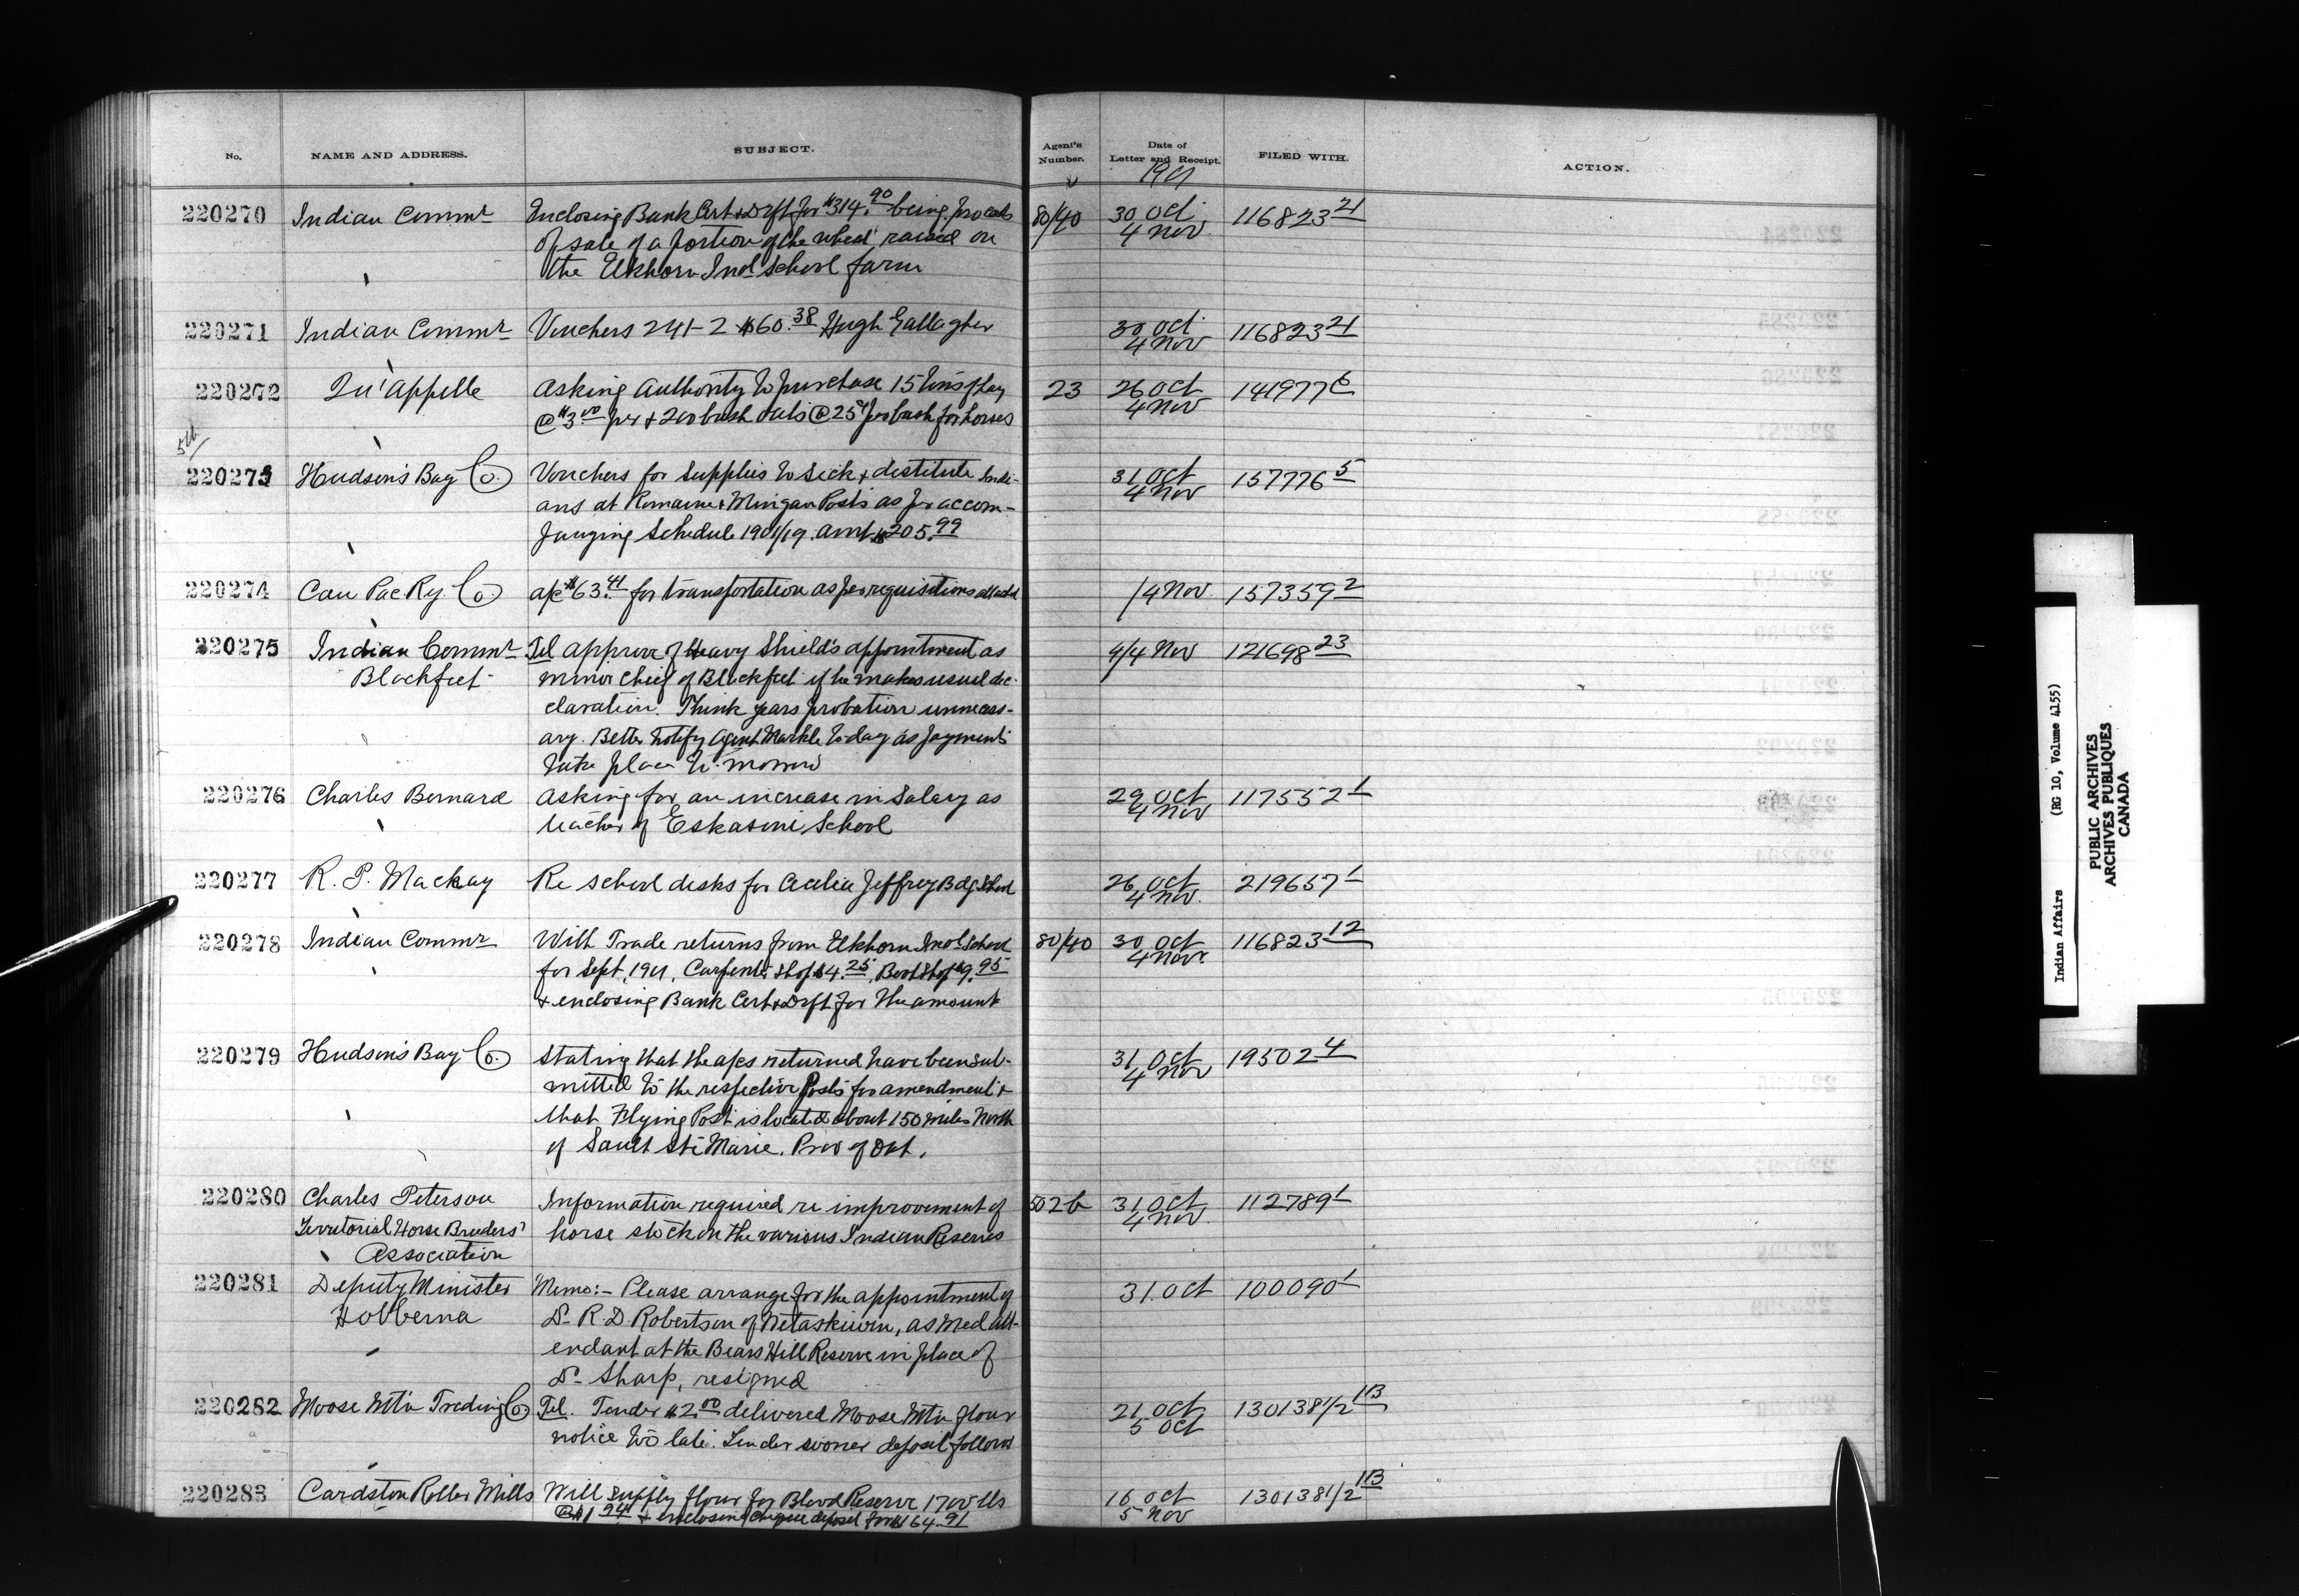 No. NAME AND ADDRESS. SUBJECT. Agent's Number. Date of Letter and Receipt. FILED WITH. ACTION.
1901
220270 Indian Commr Enclosing Bank Cert & Drft for $314.90 being proceeds 80/40 30 Oct 116823 21
of sale of a portion of the wheat raised on 4 Nov.
the Elkhorn Indl School farm
220271 Indian Commr Vouchers 241-2 $60.38 Hugh Gallagher 30 Oct 116823 21
4 Nov
220272 Qu'Appelle Asking Authority to purchase 15 tons of hay 23 26 Oct 141977 6
@ $3.00 per & 200 bush oats @ 25¢ per bush for horses 4 Nov
220273 Hudson's Bay Co. Vouchers for Supplies to Sick & destitute Indi- 31 Oct 157776 5
ans at Romaine & Mingan Posts as per accom- 4 Nov
panying Schedule 1901/19. amt $205.99
220274 Can Pac Ry. Co. a/c $63.41 for transportation as per requisitions attachd /4 Nov. 157359 2
220275 Indian Commr Tel approve of Heavy Shield's appointment as 4/4 Nov 121698 23
Blackfeet minor chief of Blackfeet if he makes usual dec-
claration. Think years probation unnecess-
ary. Better notify Agent Markle to-day as payments
take place to-morrow
220276 Charles Bernard Asking for an increase in Salary as 29 Oct 117552 1
teacher of Eskasoni School 4 Nov
220277 R. P. Mackay Re school desks for Cecilia Jeffrey Bdg. School 26 Oct 219657 1
4 Nov.
220278 Indian Commr With Trade returns from Elkhorn Indl School 80/40 30 Oct 116823 12
for Sept. 1901. Carpenter Shop $4.25, Boot Shop $9.95 4 Nov.
& enclosing Bank Cert & Drft for the amount
220279 Hudson's Bay Co. Stating that the a/cs returned have been sub- 31 Oct 19502 4
mitted to the respective Posts for amendment & 4 Nov
that Flying Post is located about 150 miles North
of Sault Ste Marie. Prov of Ont.
220280 Charles Peterson Information required re improvement of 502b 31 Oct 112789 1
Territorial Horse Breeders' horse stock on the various Indian Reserves 4 Nov.
Association
220281 Deputy Minister Memo:- Please arrange for the appointment of 31. Oct 100090 1
Hobbema Dr R. D. Robertson of Wetaskiwin, as Med Att-
endant at the Bears Hill Reserve in place of
Dr Sharp, resigned
220282 Moose Mtn Trading Co Tel. Tender $2.00 delivered Moose Mtn flour 21 Oct 130138 1/2 113
notice too late. Tender sooner deposit follows 5 Oct
220283 Cardston Roller Mills Will supply flour for Blood Reserve 1700 lbs 16 Oct 130138 1/2 113
@ $1.94 & enclosing cheque deposit for $164.91 5 Nov
Indian Affairs (RG 10, Volume 4155)
PUBLIC ARCHIVES
ARCHIVES PUBLIQUES
CANADA